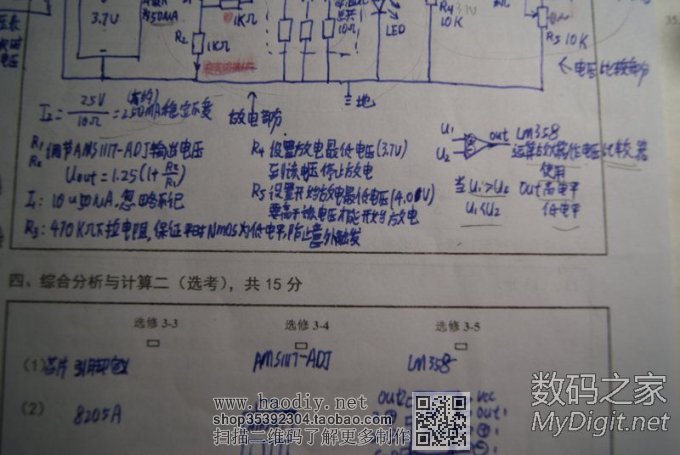 3.7V
1KΩ
R2
1KΩ
10Ω
LED
R4
10K
R5 10K
←电压比较部分
I2= 2.5V/10Ω =250mA 稳定不变
放电部分
地
R1
R2 调节AMS1117-ADJ输出电压
Uout=1.25(1+R2/R1)
R4 设置放电最低电压(3.7V)
到该电压停止放电
U1
U2
out
LM358
运算放大器作电压比较器
使用
I1: 10~50mA, 忽略不记
R5 设置开始放电最低电压(4.0V)
要高于该电压才能开始放电
当U1>U2 out高电平
U1<U2 低电平
R3: 470KΩ下拉电阻, 保证平时NMOS为低电平,防止意外触发
四、综合分析与计算二(选考),共15分
选修 3-3
选修 3-4
选修 3-5
(1) 芯片引脚定义
AMS1117-ADJ
LM358
(2) 8205A
out2
vcc
out1
www.haodiy.net
shop35392304.taobao.com
扫描二维码了解更多制作
数码之家
MyDigit.net